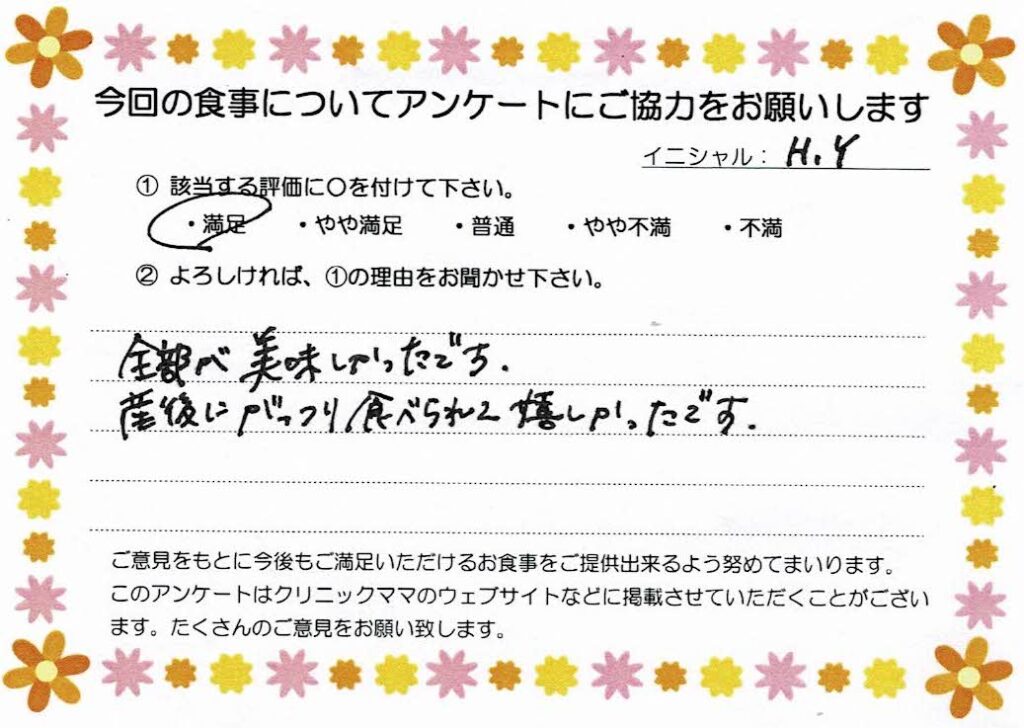 今回の食事についてアンケートにご協力をお願いします
イニシャル： H.Y
① 該当する評価に〇を付けて下さい。
・満足 ・やや満足 ・普通 ・やや不満 ・不満
② よろしければ、①の理由をお聞かせ下さい。
全部が美味しかったです.
産後にがっつり食べられて嬉しかったです.
ご意見をもとに今後もご満足いただけるお食事をご提供出来るよう努めてまいります。
このアンケートはクリニックママのウェブサイトなどに掲載させていただくことがござい
ます。たくさんのご意見をお願い致します。